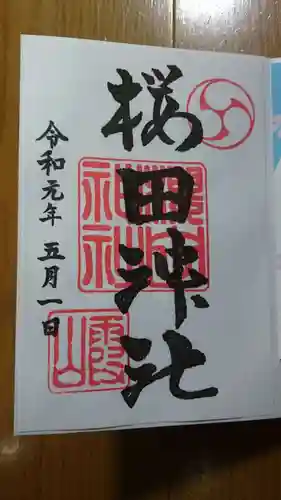 桜田神社
令和元年 五月一日
霞山